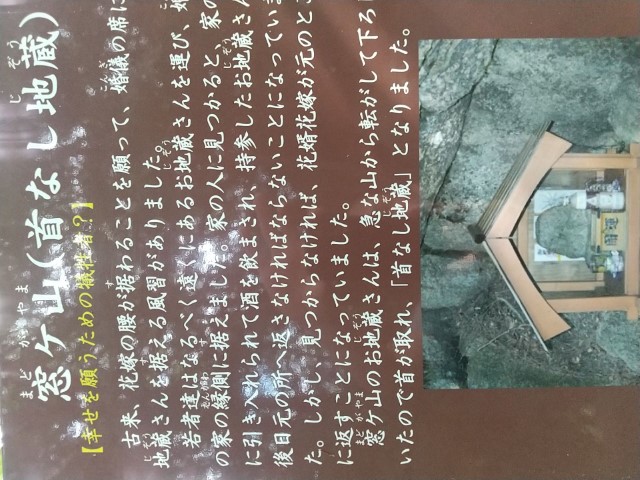 まど が やま じ ぞう
窓ケ山(首なし地蔵)
【幸せを願うための犠牲者?】
こんぎ
古来、花嫁の腰が据わることを願って、婚儀の席に
じぞう す
地蔵さんを据える風習がありました。
じぞう
若者達はなるべく遠くにあるお地蔵さんを運び、
えんがわ す
の家の縁側に据えました。家の人に見つかると、家の
じぞう
に引き入れられて酒を飲まされ、持参したお地蔵さん
後日元の所へ返さなければならないことになっていま
た。しかし、見つからなければ、花婿花嫁が元のとこ
に返すことになっていました。
まどがやま じぞう
窓ケ山のお地蔵さんは、急な山から転がして下ろし
じぞう
いたので首が取れ、「首なし地蔵」となりました。